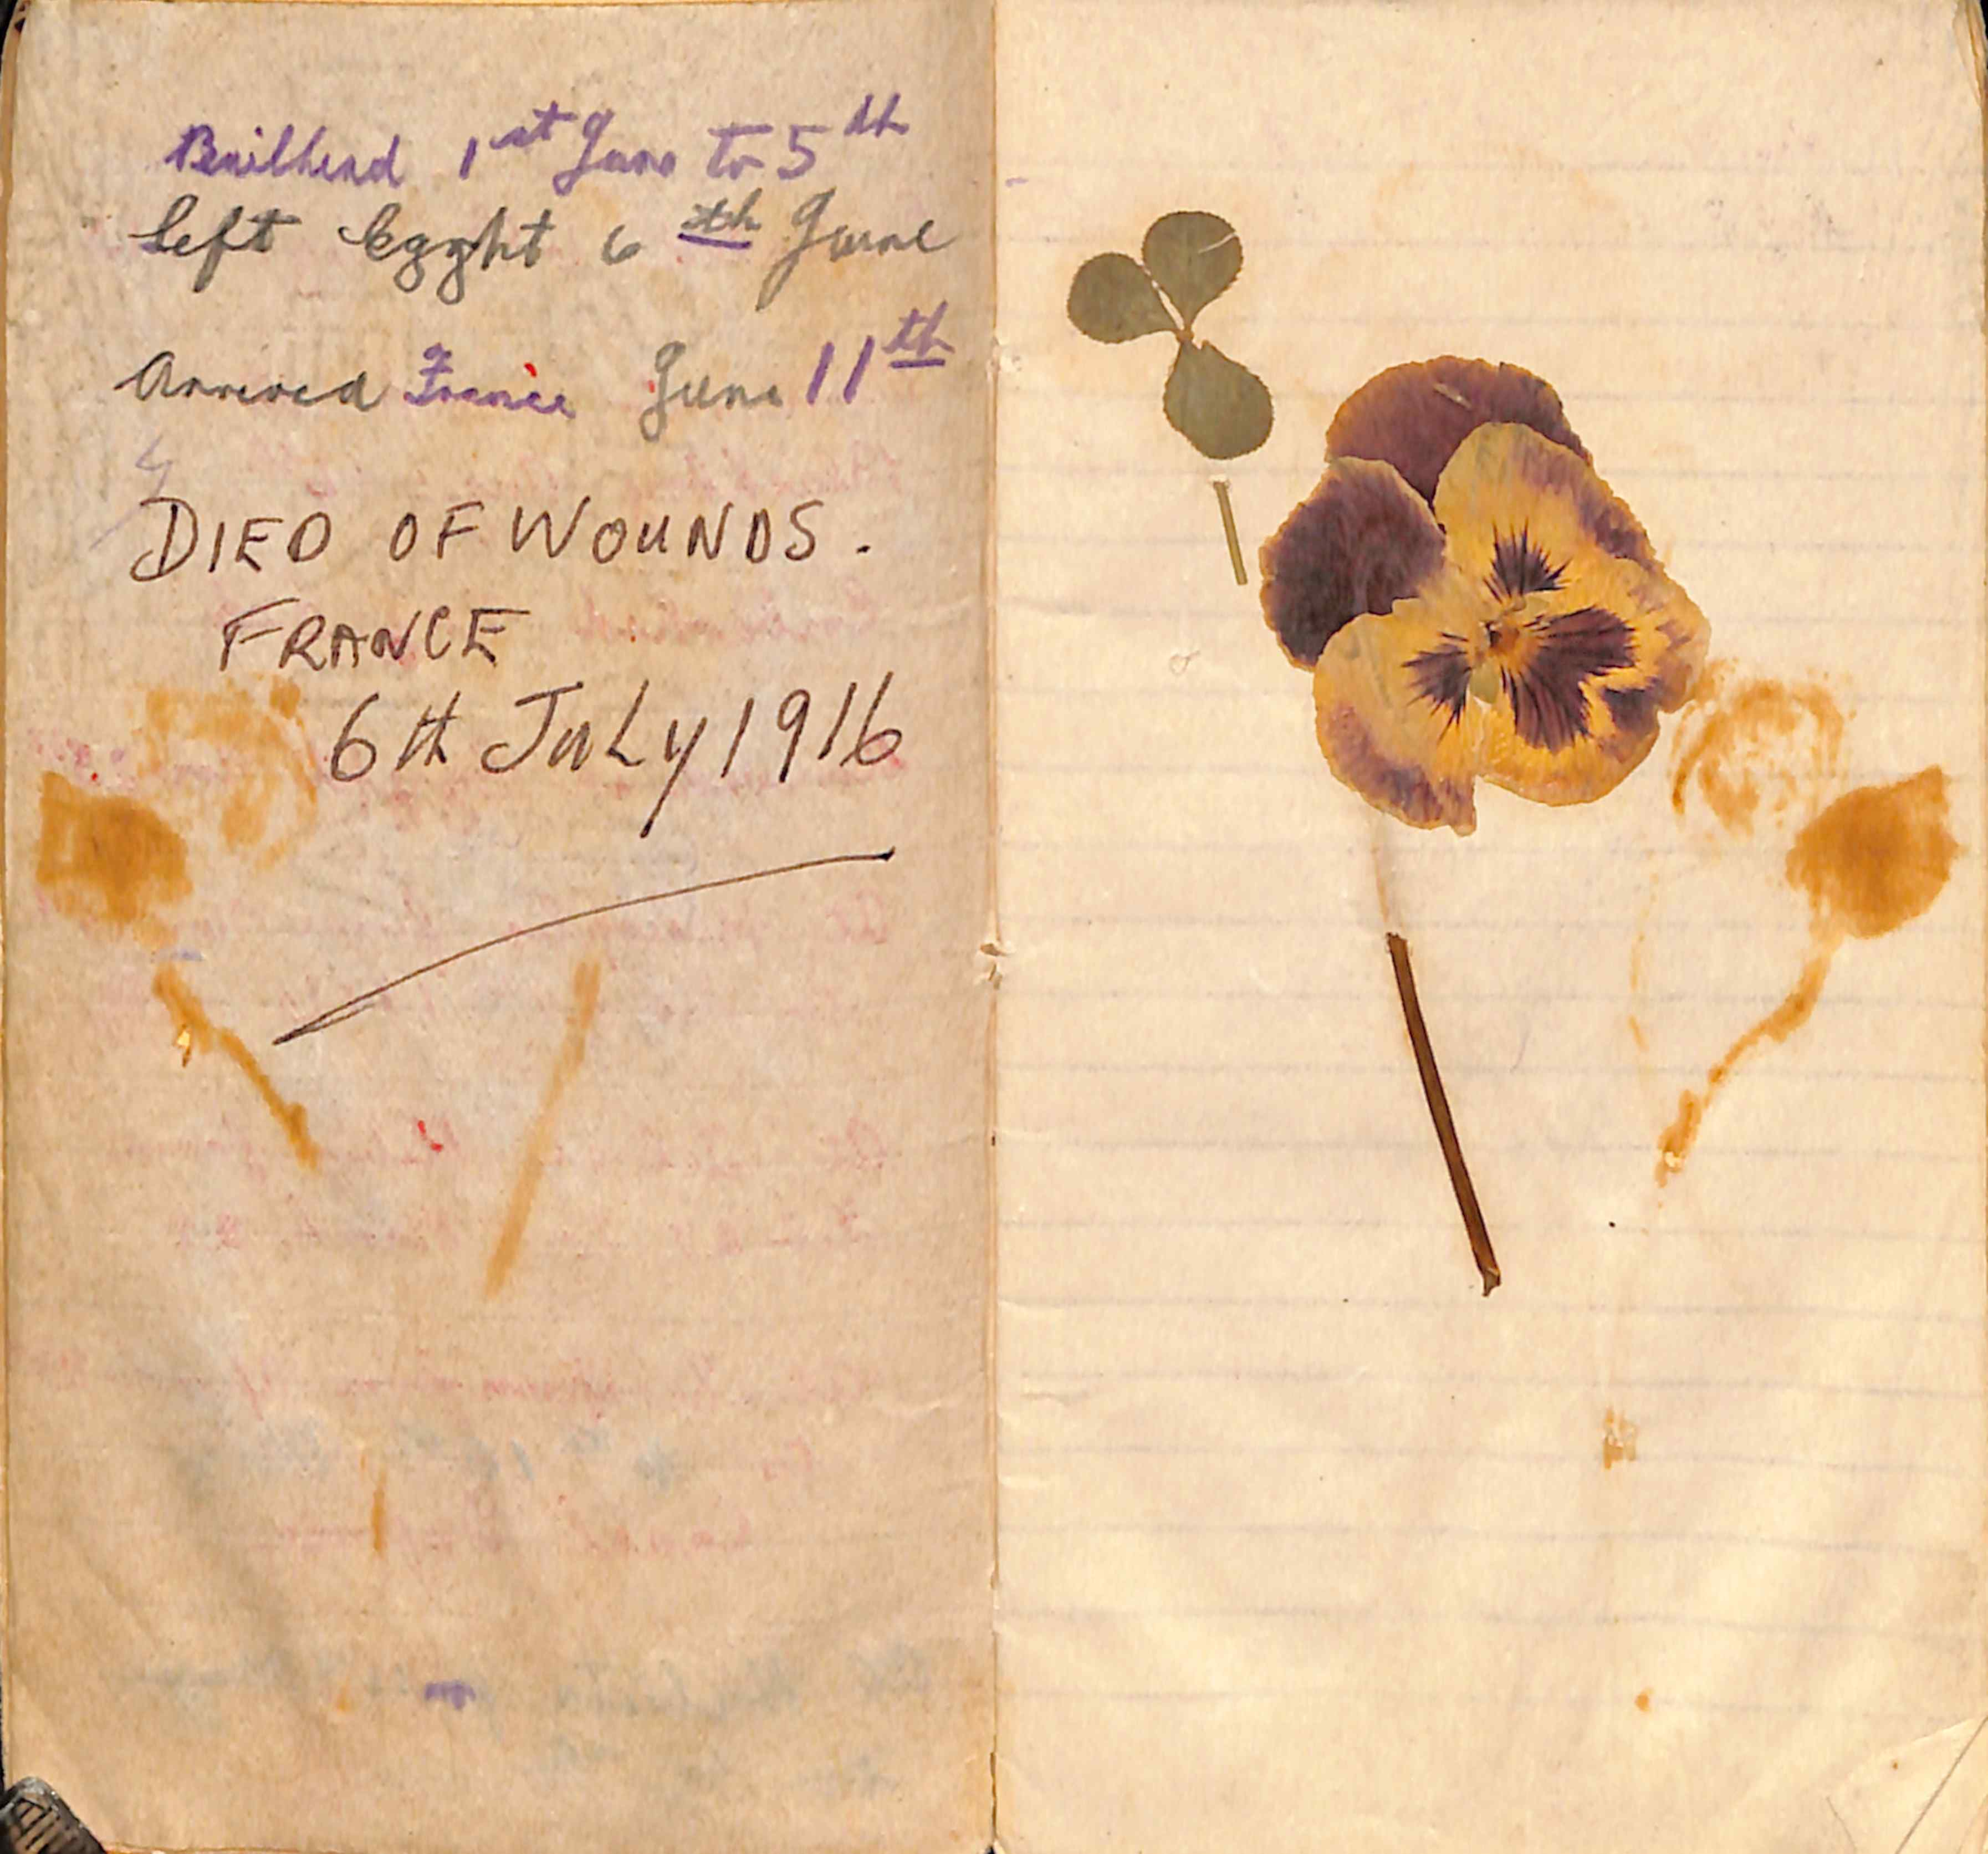 Railhead 1st June to 5th
Left Egypht 6th June
Arrived France June 11th
DIED OF WOUNDS.
FRANCE
6th JuLy 1916